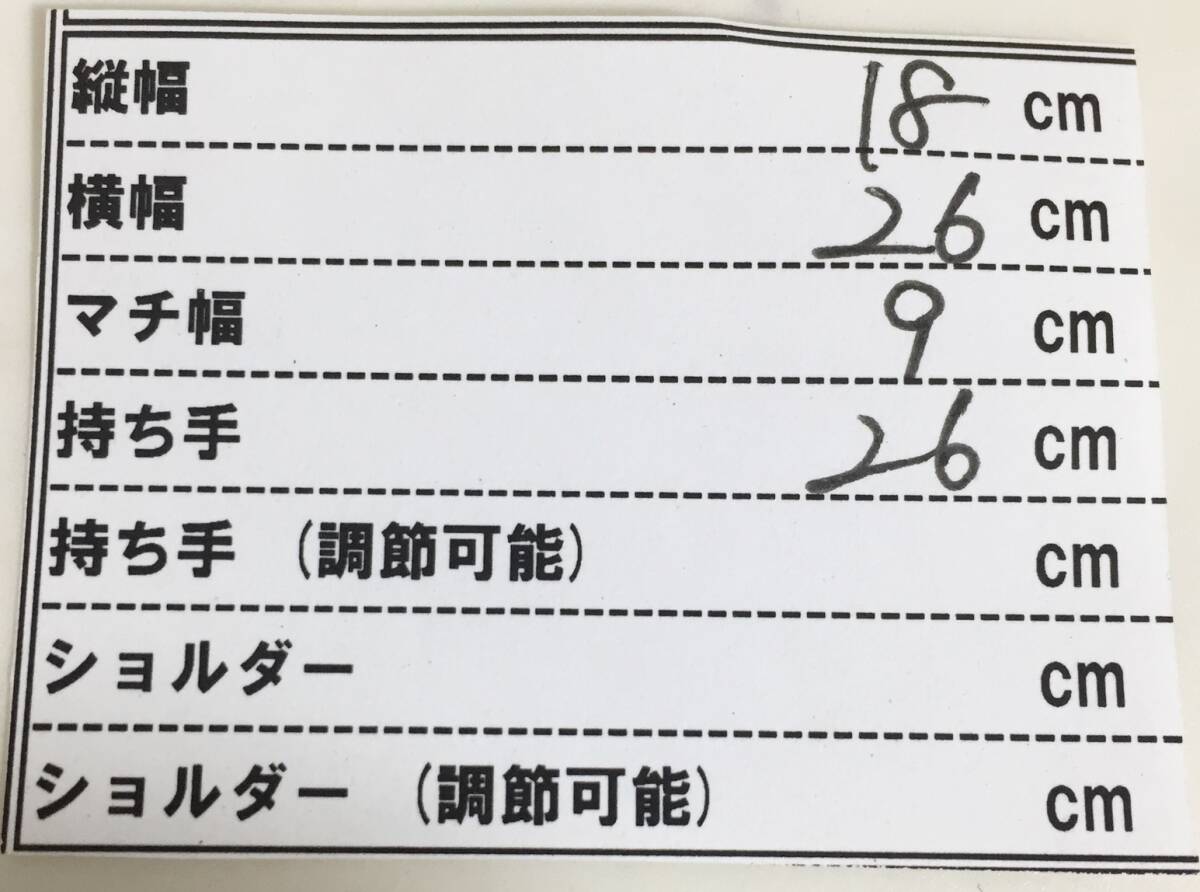 縦幅 18 cm
横幅 26 cm
マチ幅 9 cm
持ち手 26 cm
持ち手 (調節可能) cm
ショルダー cm
ショルダー (調節可能) cm